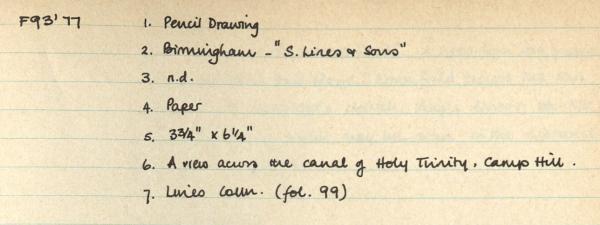 F93'77 1. Pencil Drawing
2. Birmingham - "S. Lines & Sons"
3. n.d.
4. Paper
5. 33/4" x 61/4"
6. A view across the canal of Holy Trinity, Camp Hill.
7. Lines Colln. (fol. 99)